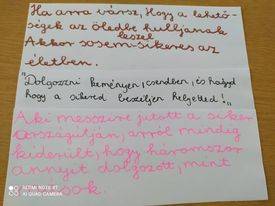 Ha arra vársz, Hogy a lehető-
ségek az öledbe hulljanak
leszel
Akkor sosem sikeres az
életben.
"Dolgozni keményen, csendben, és hagyd
hogy a sikered beszéljen helyetted!"
Aki messzire jutott a siker
országútján, arról mindig
kiderült, hogy háromszor
annyit dolgozott, mint
sok.
REDMI NOTE 8T
AI QUAD CAMERA